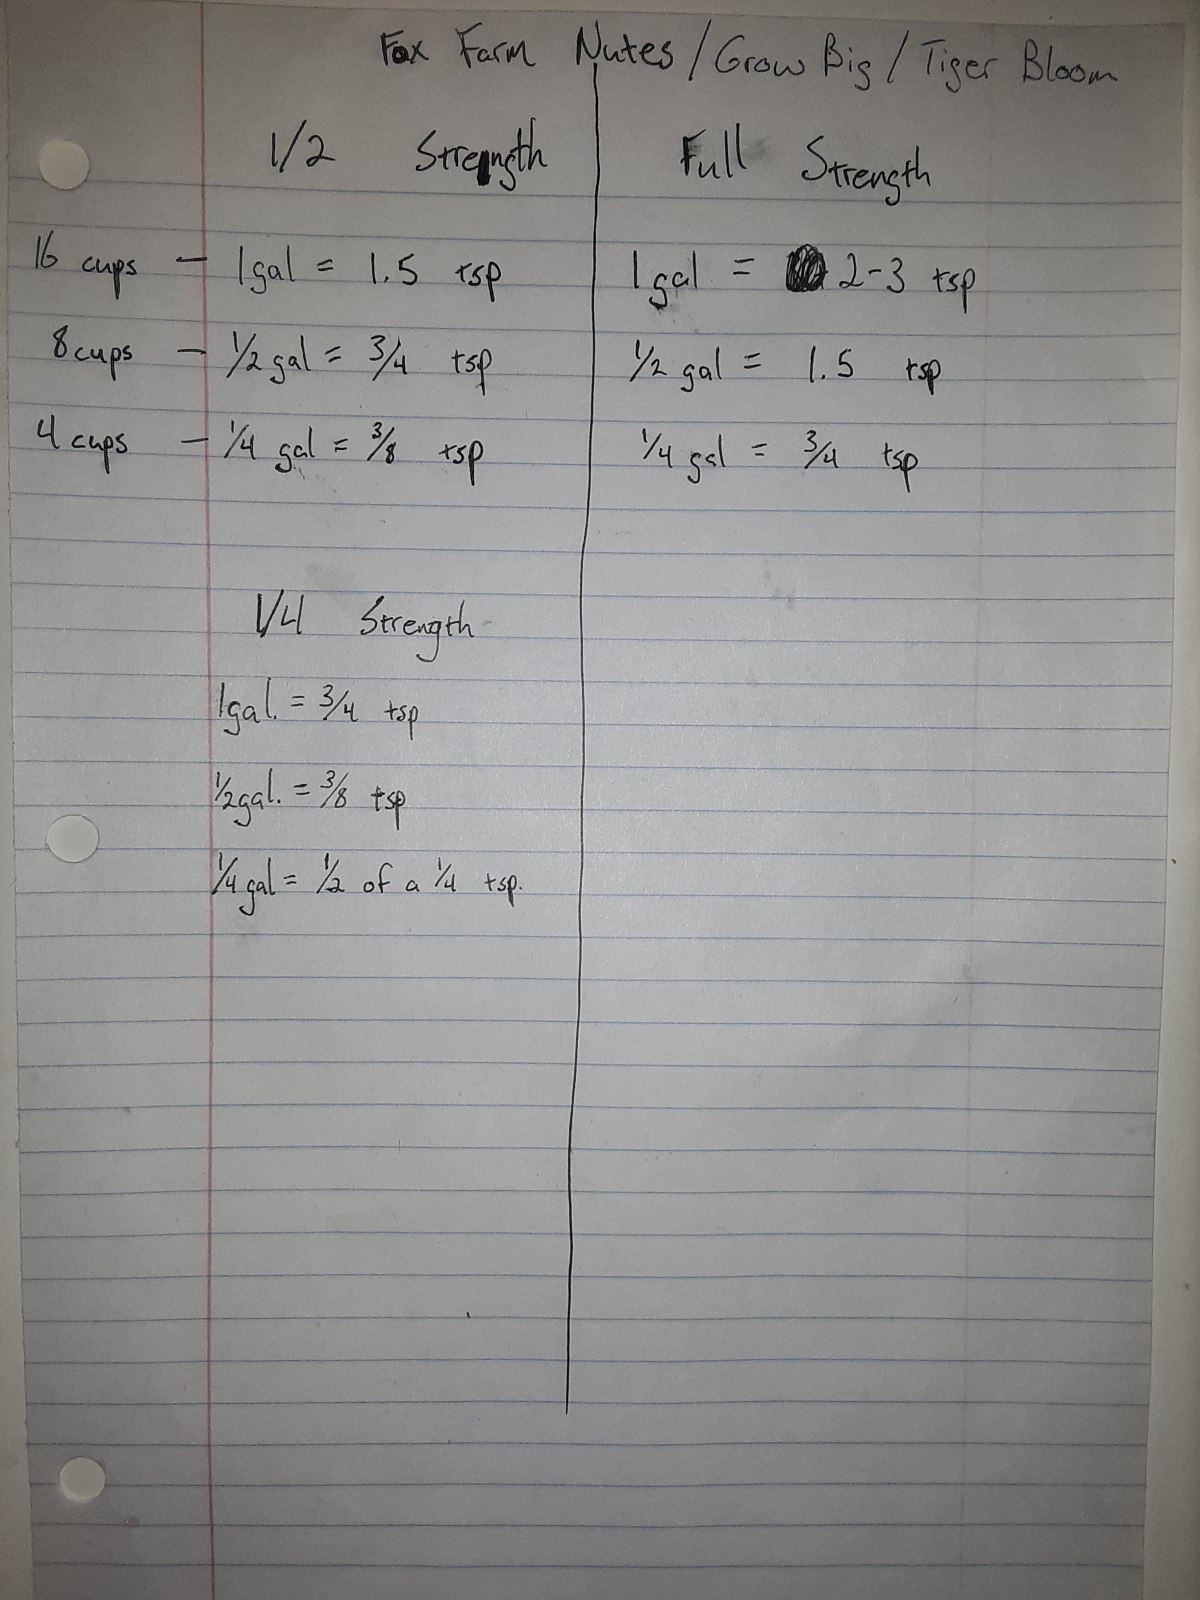 Fox Farm Nutes / Grow Big / Tiger Bloom
1/2 Strength
Full Strength
16 cups - 1 gal = 1.5 tsp
1 gal = 2-3 tsp
8 cups - 1/2 gal = 3/4 tsp
1/2 gal = 1.5 tsp
4 cups - 1/4 gal = 3/8 tsp
1/4 gal = 3/4 tsp
1/4 Strength
1 gal. = 3/4 tsp
1/2 gal. = 3/8 tsp
1/4 gal = 1/2 of a 1/4 tsp.